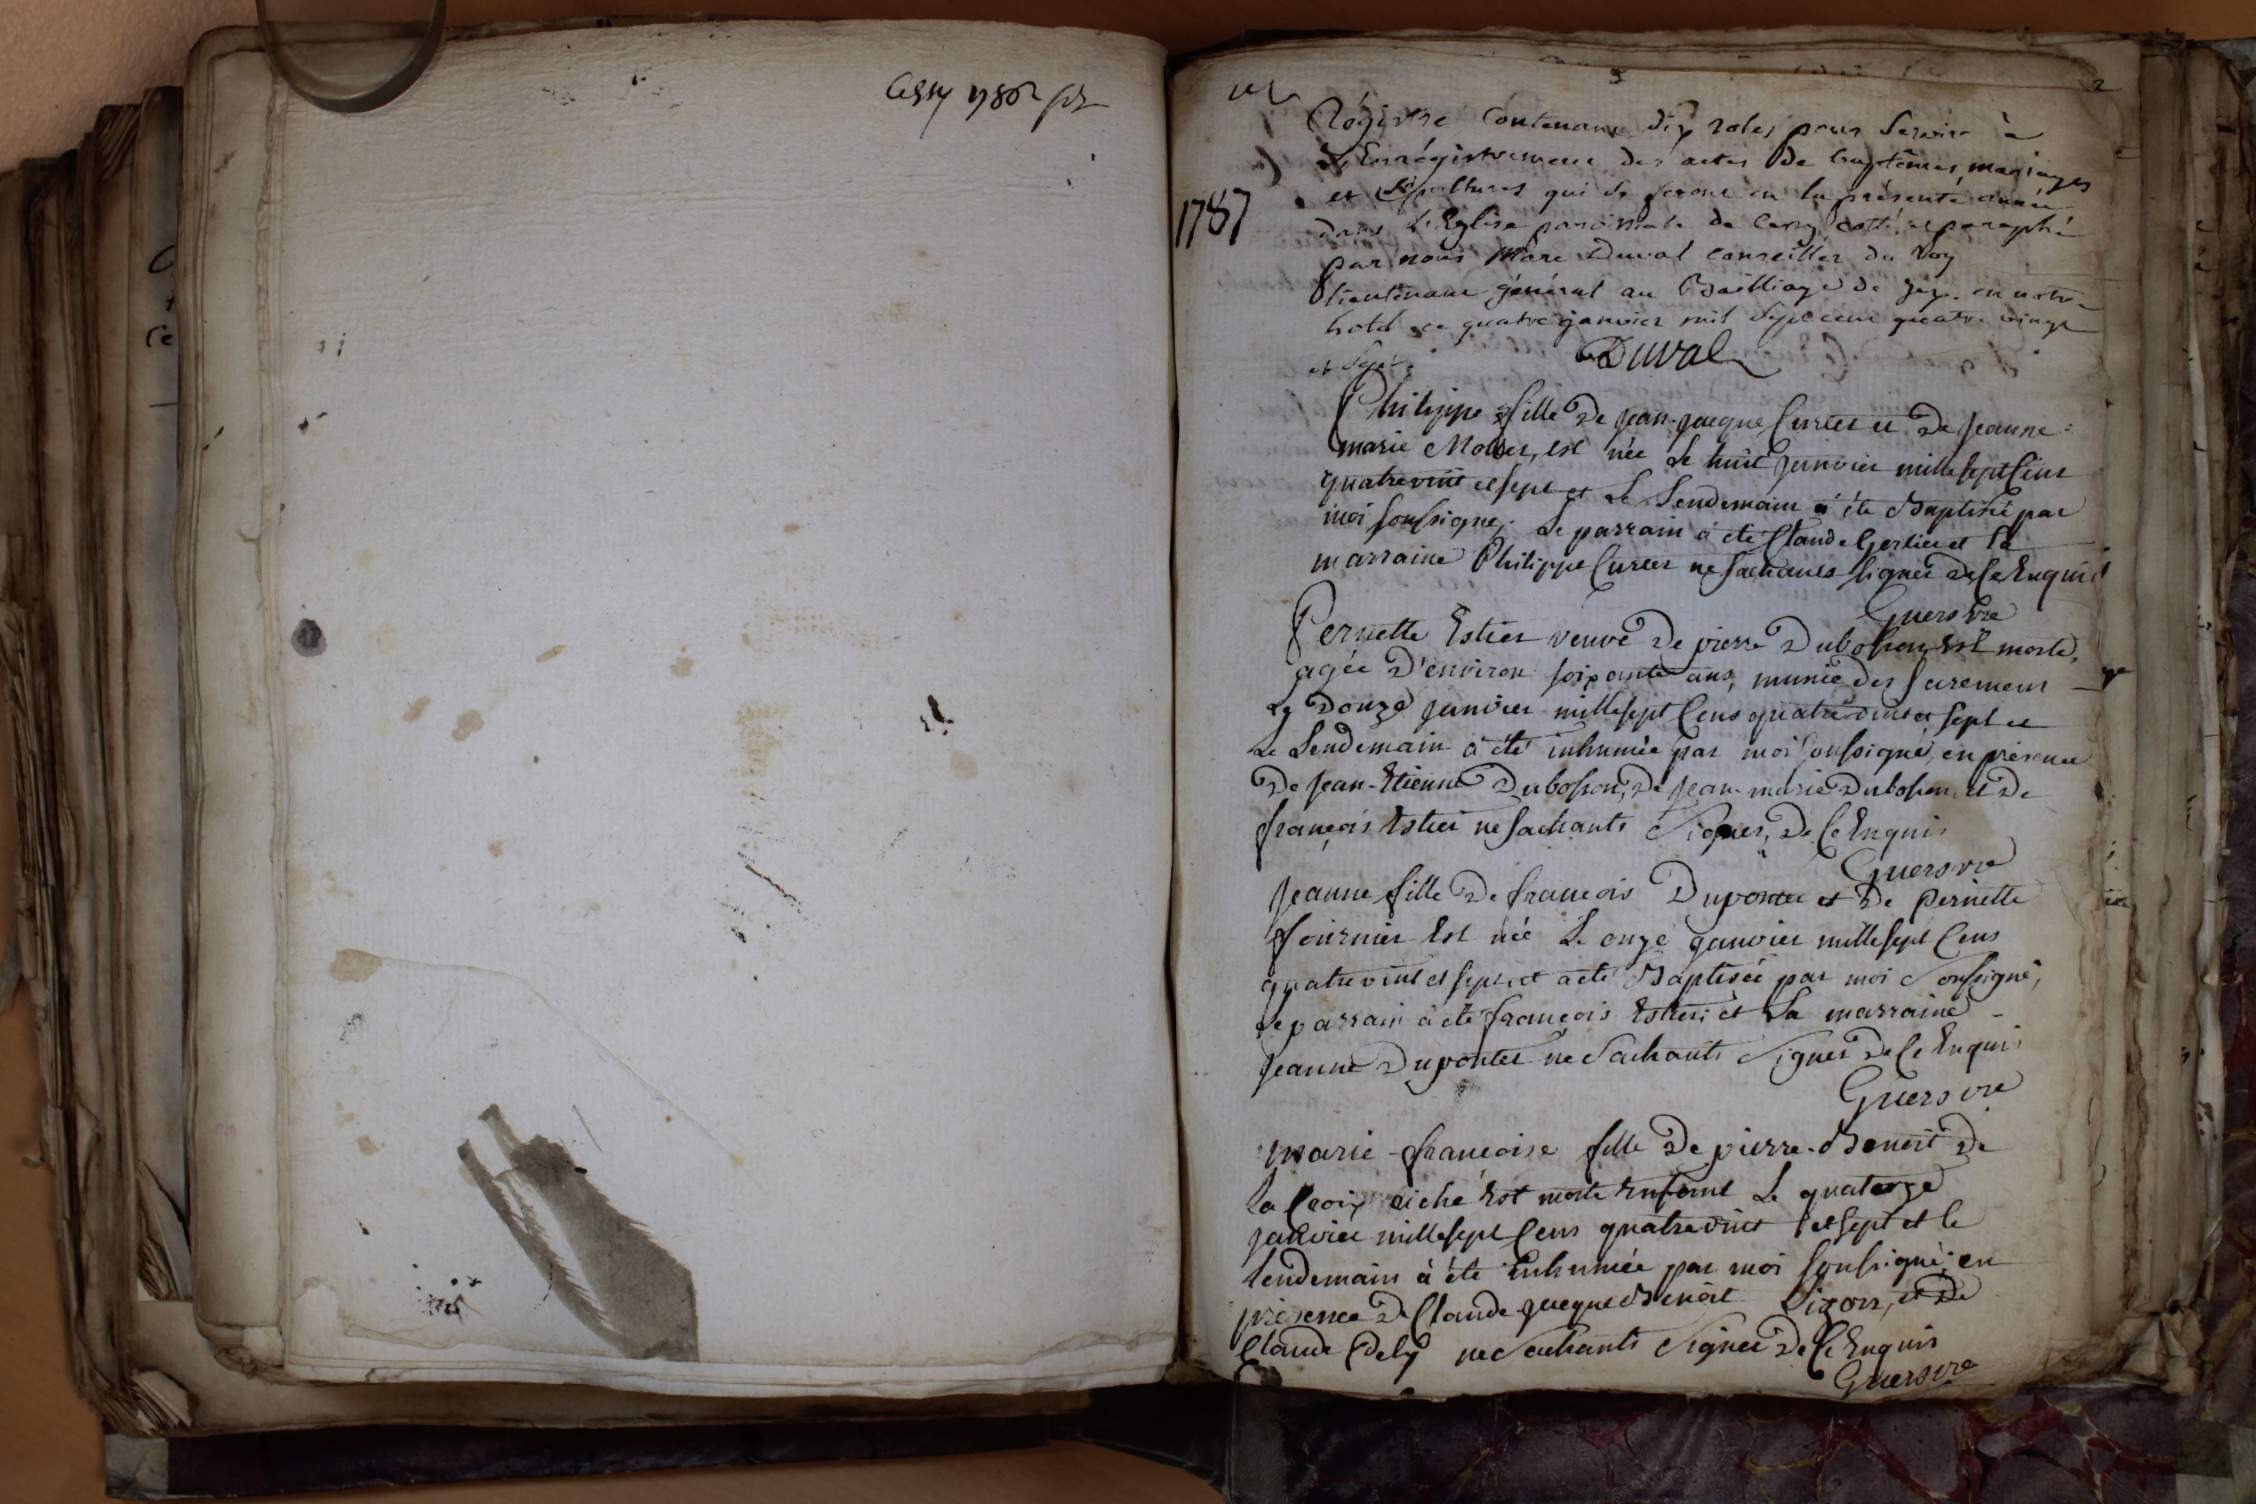 Cessy 1786
2
1787
Régistre Contenant dix roles pour Servir à
L'Enrégistrement des actes de baptêmes, mariages
et Sépultures qui Se feront en la présente année
dans L'Eglise paroissiale de Cessy cotté et paraphé
par nous Marc Duval Conseiller du Roy
lieutenant général au Bailliage de Gex. en notre
hotel ce quatre janvier mil Sept cent quatre vingt
et Sept.
Duval
Philippe fille De jean-jacque Curtet et De jeanne
marie Mottier, est née Le huit janvier mille sept Cens
quatrevint et sept et Le Lendemain à été Baptisée par
moi soussigné; Le parrain à été Claude Gertier et la
marraine Philippe Curtet ne sachants signer De Ce Enquis
Guers vre
Pernette Estier veuve De pierre Duboson, est morte,
agée D'environ soixante ans, munie des sacremens
Le Douze janvier mille sept Cens quatrevint et sept et
Le Lendemain à été inhumée par moi soussigné, en présence
De jean-Etienne Duboson, De jean-marie Duboson, et De
françois Estier ne sachants Signer, De Ce Enquis
Guers vre
Jeanne fille De françois Dupontet et De pernette
fournier Est née Le onze janvier mille sept Cens
quatrevint et sept, et a été Baptisée par moi Soussigné,
Le parrain à été françois Estier; et La marraine
Jeanne Dupontet ne Sachants Signer De Ce Enquis
Guers vre
marie-françoise fille De pierre-Benoit De
la Croix riché Est morte Enfant Le quatorze
janvier mille sept Cens quatrevint et sept et le
Lendemain à été Enhumée par moi soussigné; en
présence De Claude-jacque Benoit Digon, et De
Claude Dely ne Sachants Signer De Ce Enquis
Guers vre